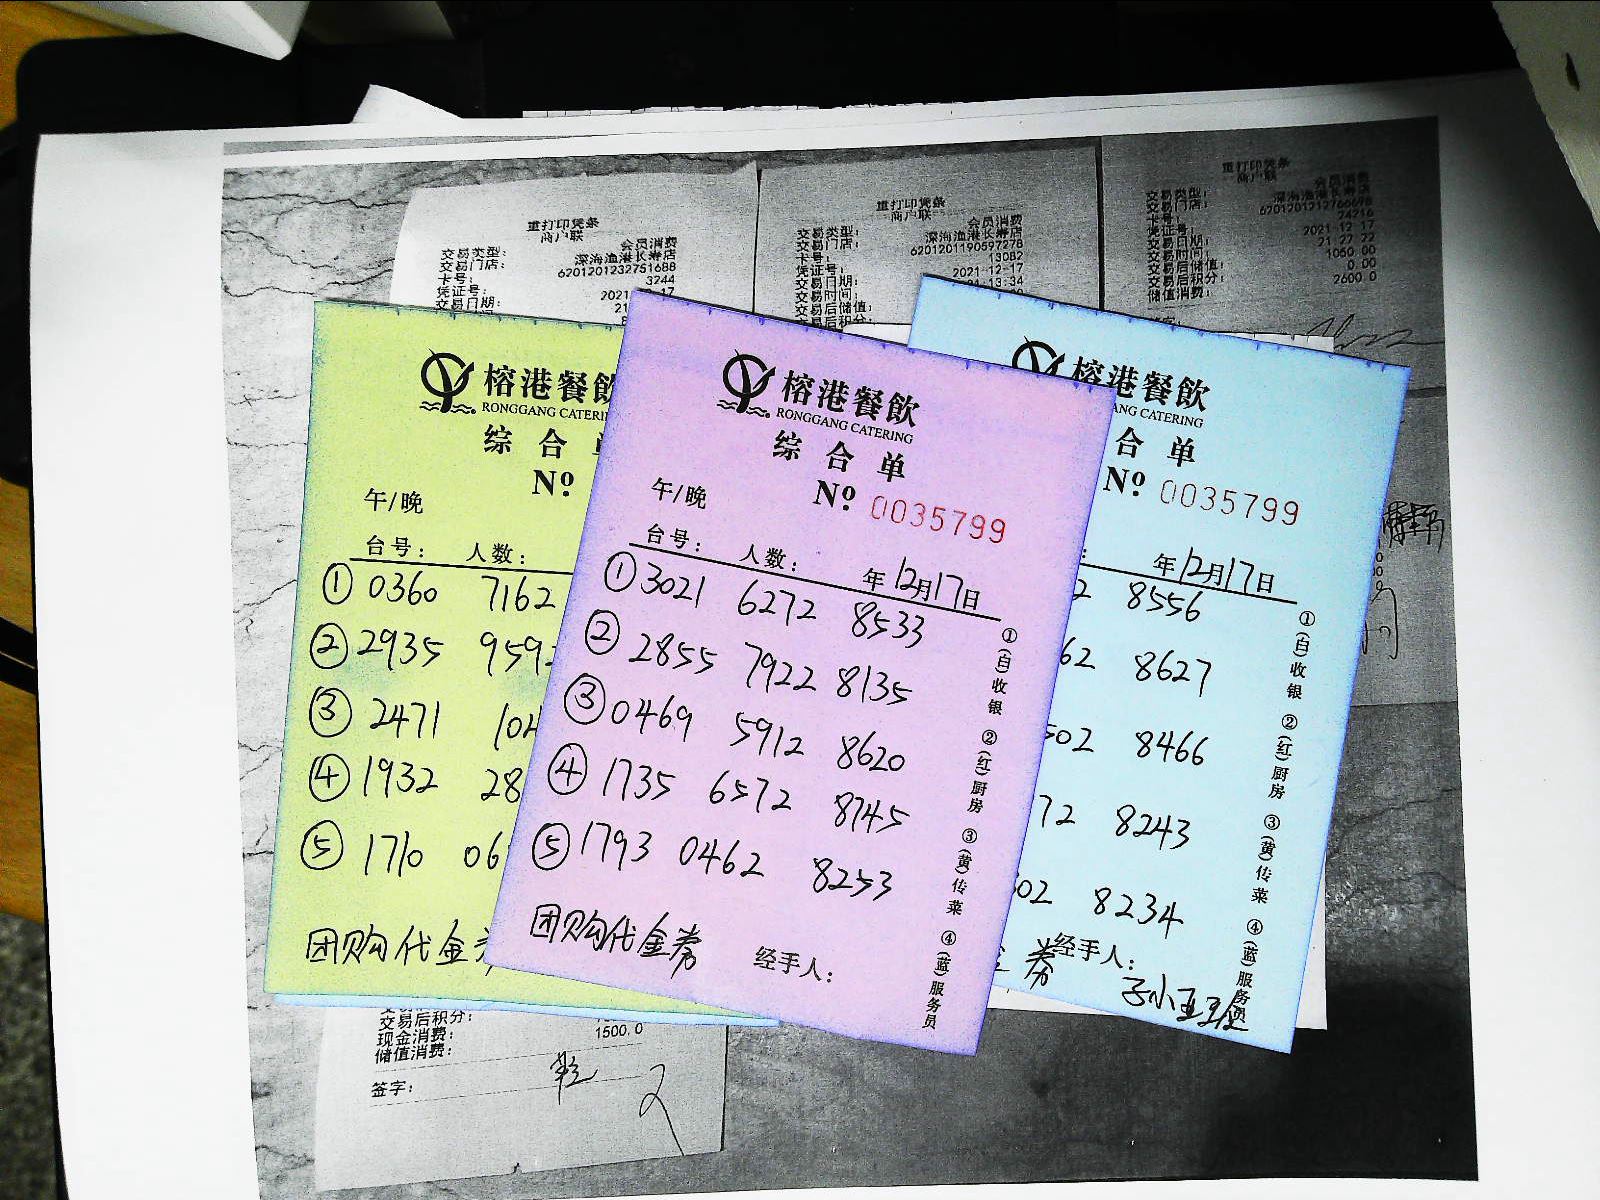 重打印凭条
商户联
交易类型: 会员消费
交易门店: 深海渔港长寿店
卡号: 6201201232751688
凭证号: 3244
交易日期:
重打印凭条
商户联
交易类型: 会员消费
交易门店: 深海渔港长寿店
卡号: 6201201190597278
凭证号: 13082
交易日期: 2021-12-17
交易时间: 13:34
交易后储值:
交易后积分:
重打印凭条
商户联
交易类型: 会员消费
交易门店: 深海渔港长寿店
卡号: 6201201212766698
凭证号: 24216
交易日期: 2021-12-17
交易时间: 21:27:22
交易后储值: 1050.00
交易后积分: 0.00
储值消费: 2600.0
榕港餐飲
RONGGANG CATERI
综合单
No
午/晚
台号: 人数:
① 0360 7162
② 2935 959
③ 2471 104
④ 1932 28
⑤ 1710 06
团购代金券
榕港餐飲
RONGGANG CATERING
综合单
No 0035799
午/晚
台号: 人数: 年12月17日
① 3021 6272 8533
② 2855 7922 8135
③ 0469 5912 8620
④ 1735 6572 8745
⑤ 1793 0462 8253
团购代金券 经手人:
①(白)收银 ②(红)厨房 ③(黄)传菜 ④(蓝)服务员
榕港餐飲
ANG CATERING
合单
No 0035799
年12月17日
2 8556
62 8627
502 8466
72 8243
02 8234
金券 经手人:
①(白)收银 ②(红)厨房 ③(黄)传菜 ④(蓝)服务员
交易后积分:
现金消费: 1500.0
储值消费:
签字: